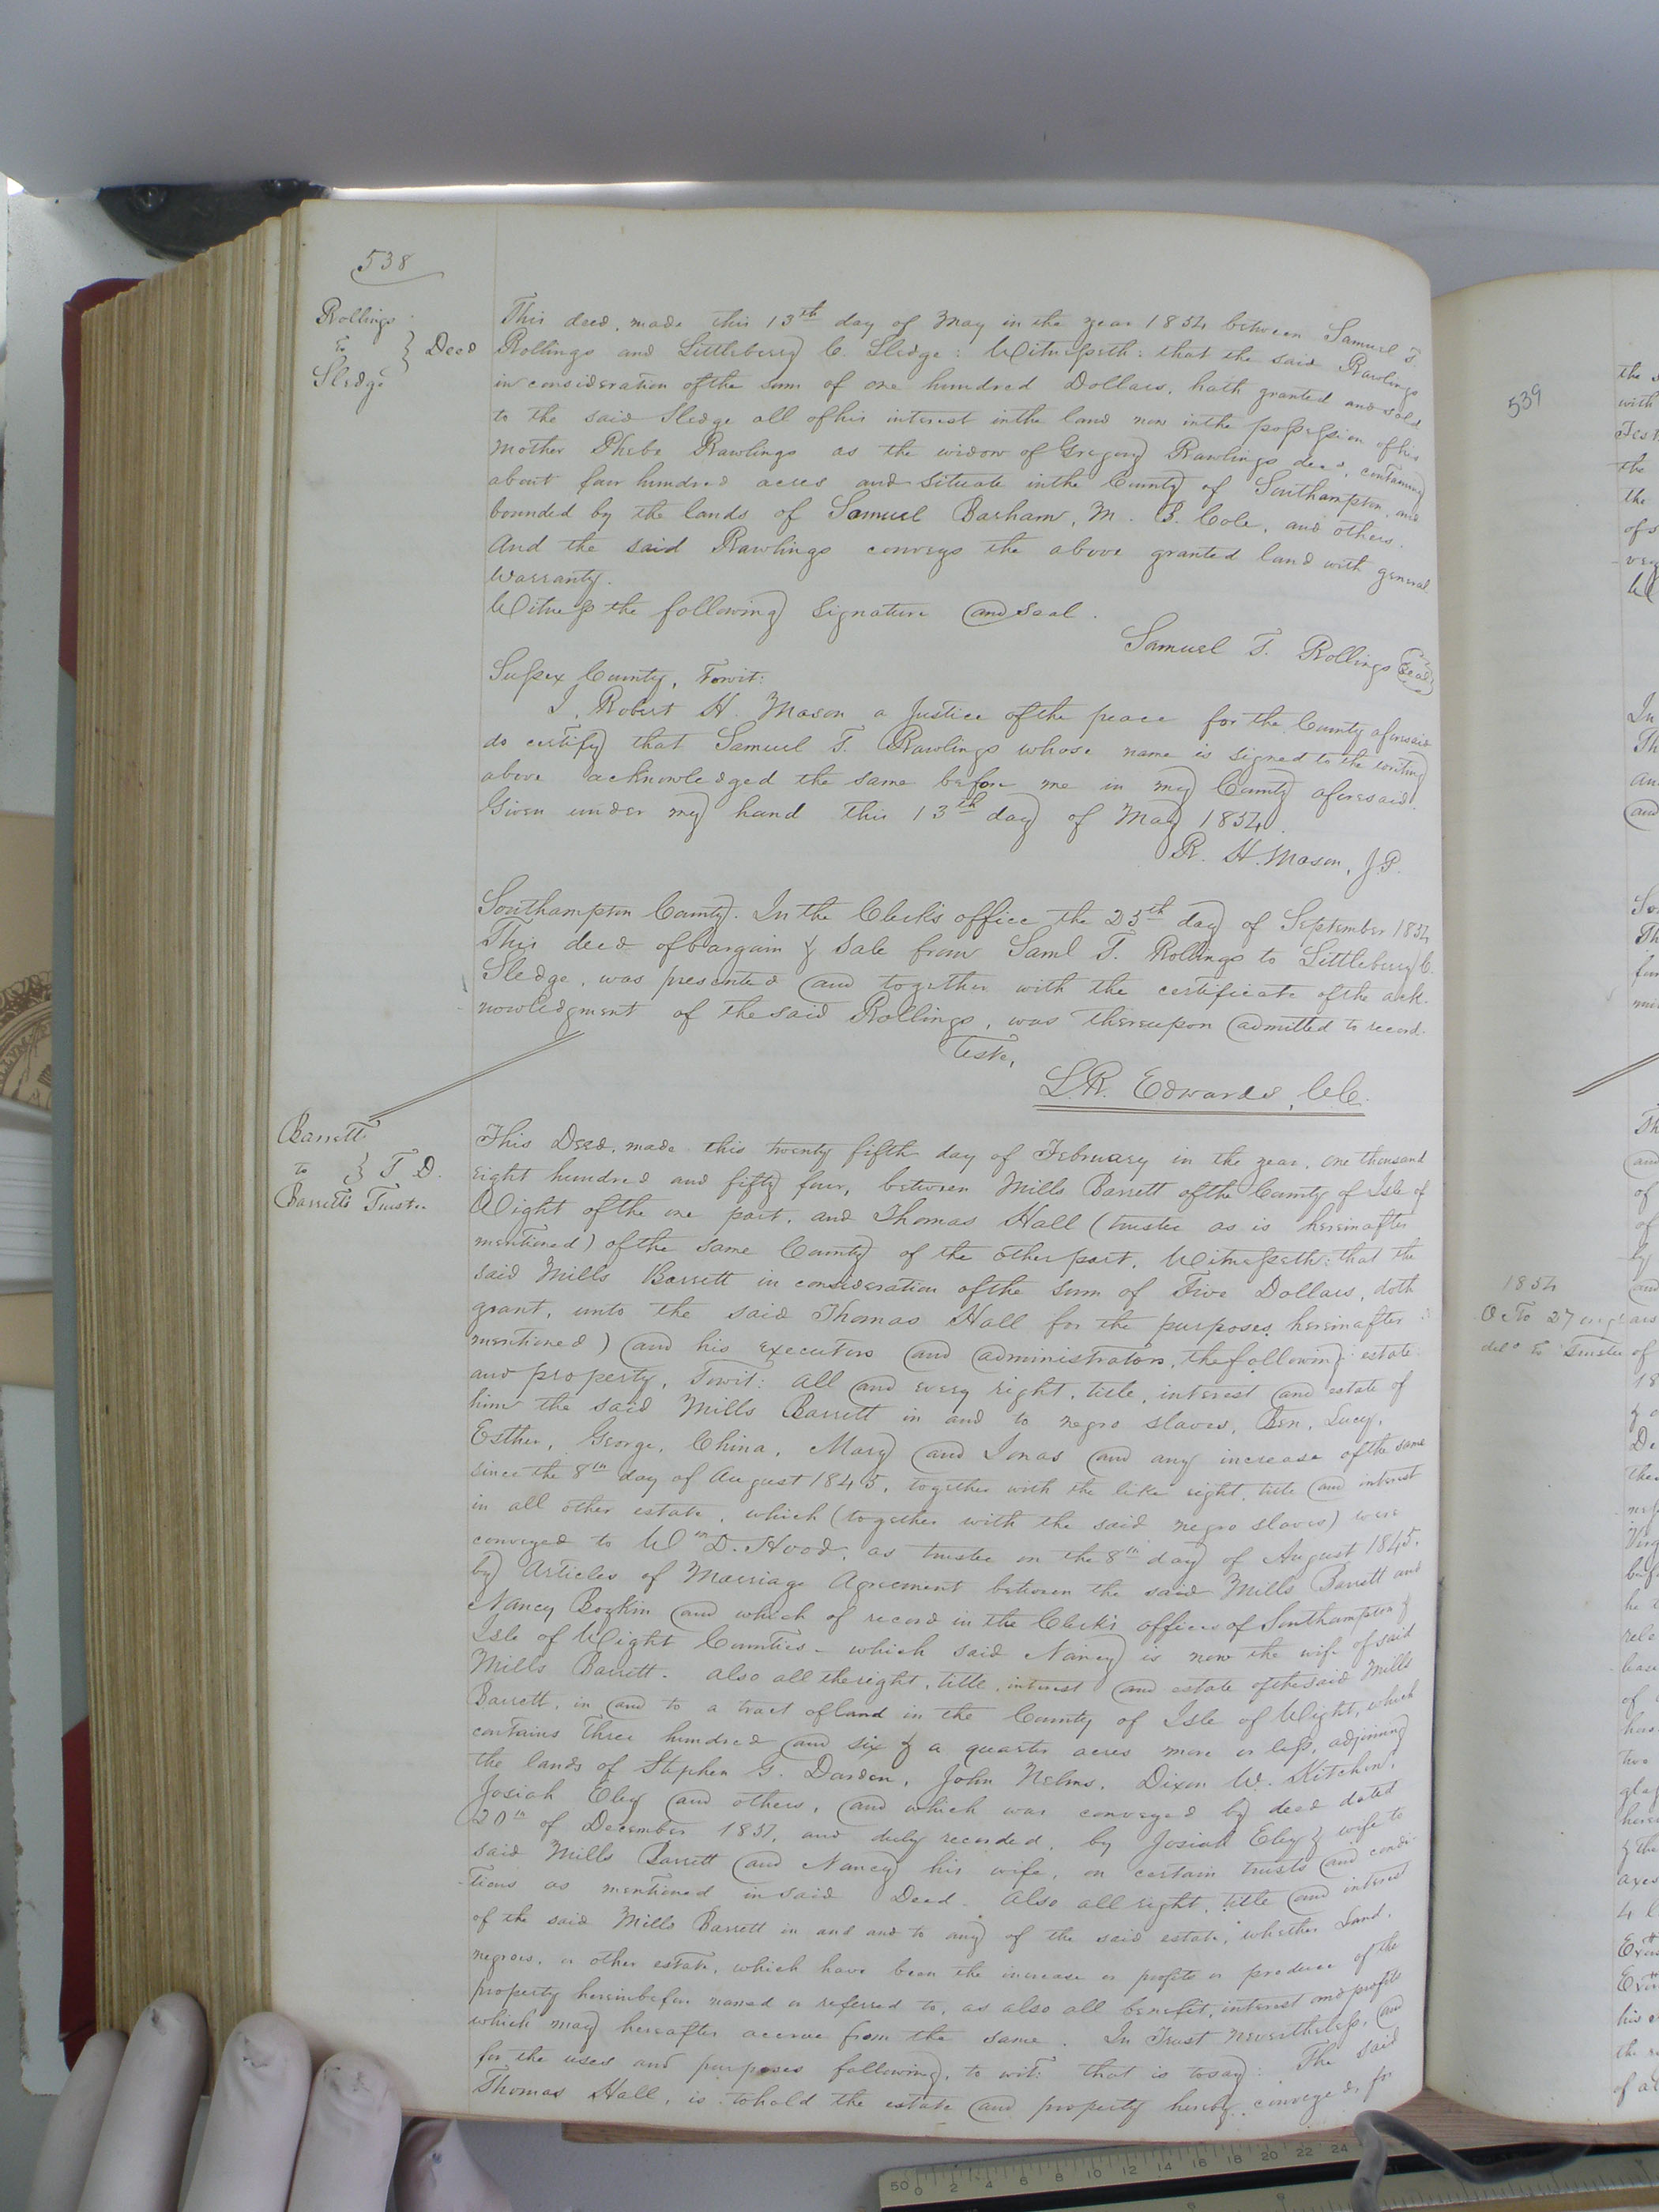 538
Rollings
to } Deed
Sledge
This deed, made this 13th day of May in the year 1854 between Samuel T.
Rollings and Littleberry C. Sledge: Witnesseth: that the said Rawlings
in consideration of the sum of one hundred Dollars, hath granted and sold
to the said Sledge all of his interest in the land now in the possession of his
mother Phebe Rawlings as the widow of Gregory Rawlings decd, containing
about four hundred acres and situate in the County of Southampton, and
bounded by the lands of Samuel Barham, M. B. Cole, and others.
And the said Rawlings conveys the above granted land with general
Warranty.
Witness the following signature and seal.
Samuel T. Rollings {Seal}
Sussex County, Towit:
I, Robert H. Mason a Justice of the peace for the County aforesaid
do certify that Samuel T. Rawlings whose name is signed to the writing
above acknowledged the same before me in my County aforesaid.
Given under my hand this 13th day of May 1854.
R. H. Mason, J.P.
Southampton County. In the Clerk's office the 25th day of September 1854
This deed of bargain & sale from Saml T. Rollings to Littleberry C.
Sledge, was presented and together with the certificate of the ack-
nowledgment of the said Rollings, was thereupon admitted to record.
Teste,
L.R. Edwards, C.C.
Barrett
to } T. D.
Barretts Trustee
This Deed, made this twenty fifth day of February in the year, one thousand
eight hundred and fifty four, between Mills Barrett of the County of Isle of
Wight of the one part, and Thomas Hall (trustee as is hereinafter
mentioned) of the same County of the other part, Witnesseth: that the
said Mills Barrett in consideration of the sum of Five Dollars, doth
grant, unto the said Thomas Hall for the purposes hereinafter
mentioned) and his executors and administrators, the following estate
and property, Towit: all and every right, title, interest and estate of
him the said Mills Barrett in and to negro slaves, Ben, Lucy,
Esther, George, China, Mary and Jonas and any increase of the same
since the 8th day of August 1845, together with the like right, title and interest
in all other estate, which (together with the said negro slaves) were
conveyed to Wm D. Hood, as trustee on the 8th day of August 1845,
by Articles of Marriage Agreement between the said Mills Barrett and
Nancy Boykin and which of record in the Clerk's offices of Southampton &
Isle of Wight Counties - which said Nancy is now the wife of said
Mills Barrett. Also all the right, title, interest and estate of the said Mills
Barrett, in and to a tract of land in the County of Isle of Wight, which
contains three hundred and six & a quarter acres more or less, adjoining
the lands of Stephen G. Darden, John Nelms, Dixon W. Kitchen,
Josiah Eley and others, and which was conveyed by deed dated
20th of December 1851, and duly recorded, by Josiah Eley & wife to
said Mills Barrett and Nancy his wife, on certain trusts and condi-
tions as mentioned in said Deed. Also all right, title and interest
of the said Mills Barrett in and and to any of the said estate, whether Land,
negroes, or other estate, which have been the increase or profits or produce of the
property hereinbefore named or referred to, as also all benefit, interest and profits
which may hereafter accrue from the same. In Trust nevertheless, and
for the uses and purposes following, to wit: that is to say: The said
Thomas Hall, is to hold the estate and property hereby conveyed, for
539
1854
Octo 27
deld to Trustee